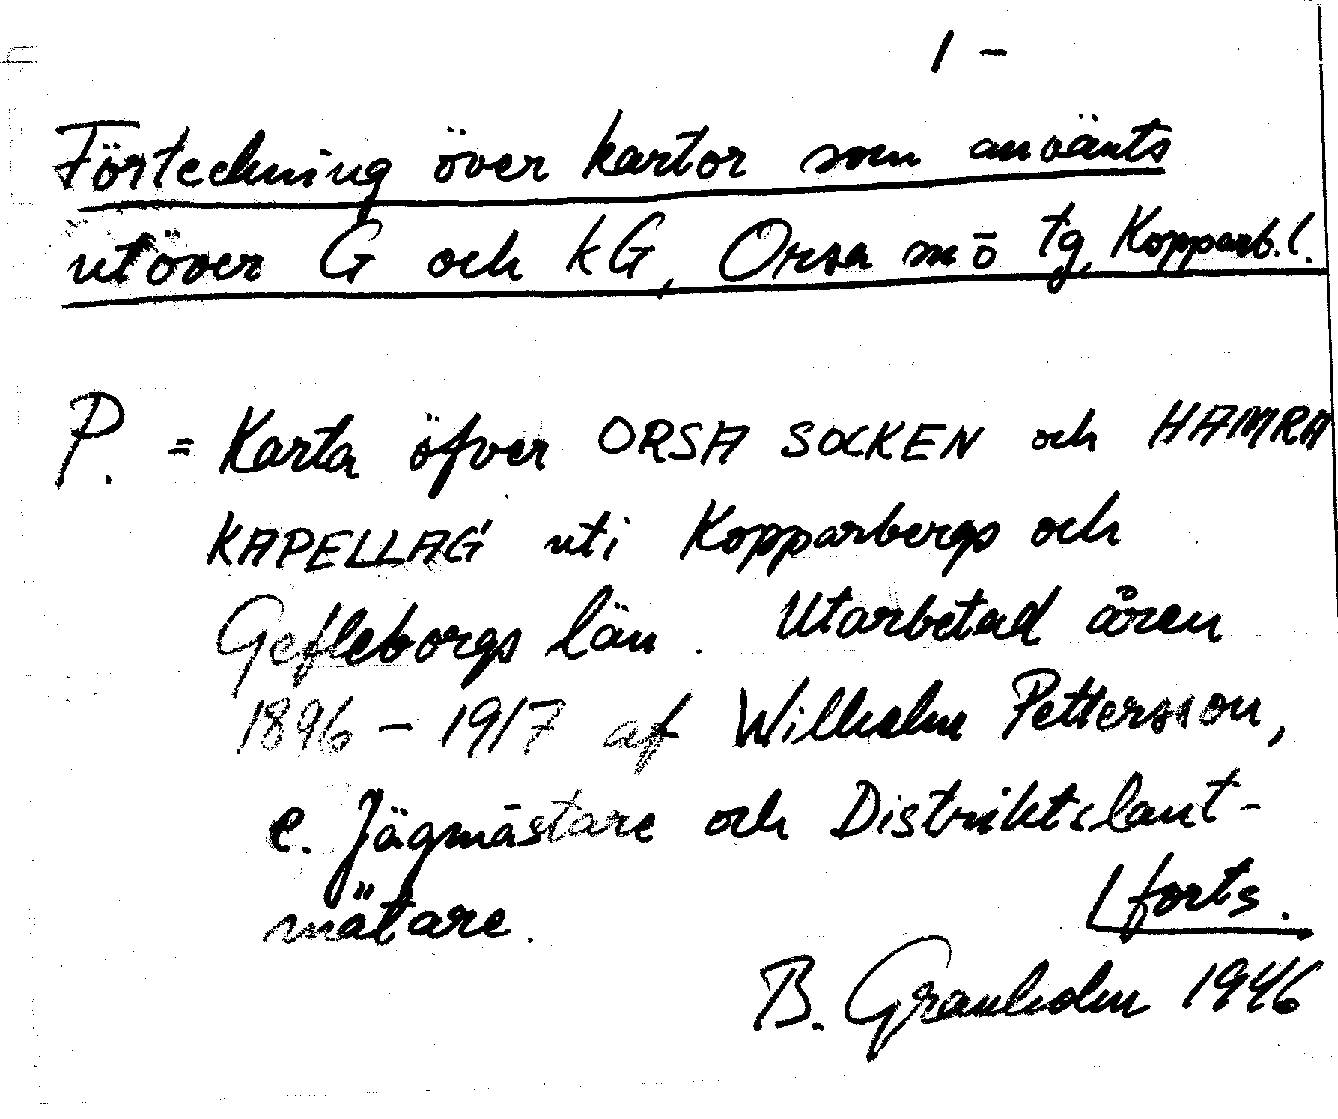 1 -
Förteckning över kartor som använts
utöver G och kG, Orsa m ō tg, Kopparb.l.
P. = Karta öfver ORSA SOCKEN och HAMRA
KAPELLAG uti Kopparbergs och
Gefleborgs län. Utarbetad åren
1896 - 1917 af Wilhelm Pettersson,
e. Jägmästare och Distriktslant-
mätare.
forts.
B. Granholm 1946